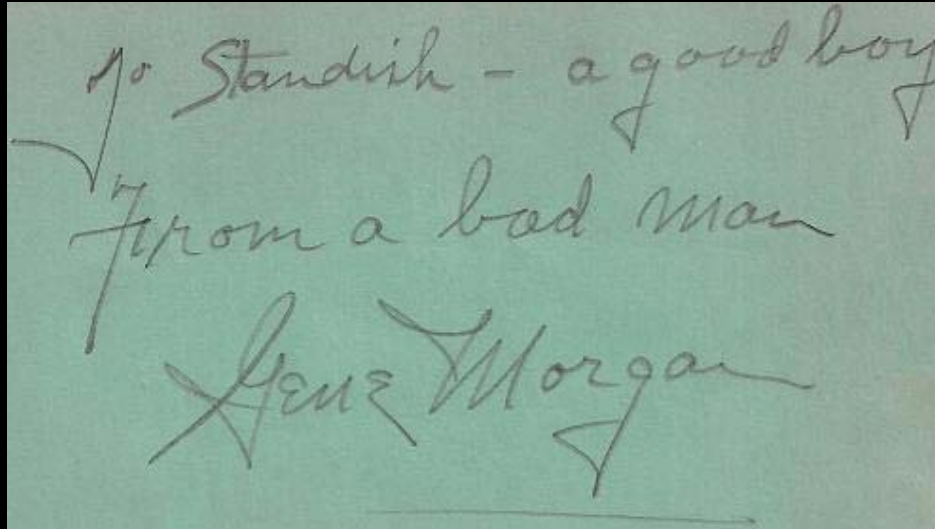 To Standish - a good boy
From a bad man
Gene Morgan